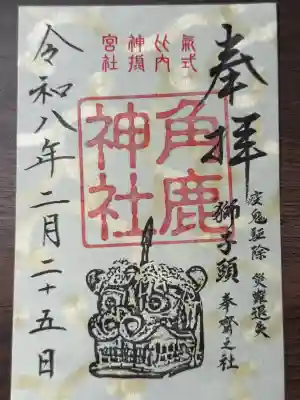 奉拝
疫鬼駆除 災難退失
獅子頭 奉齋之社
式内
氣比神宮
摂社
角鹿
神社
令和八年二月二十五日